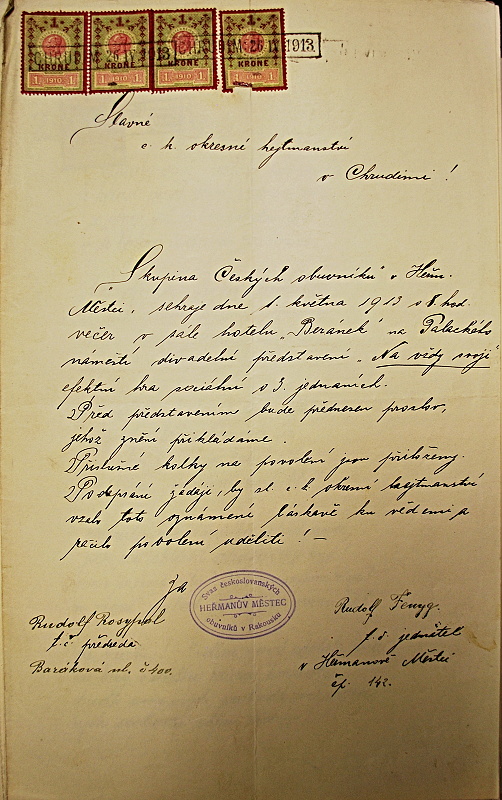 1 KRONE 1 1910 1
1 KRONE 1 1910 1
1 KRONE 1 1910 1
1 KRONE 1 1910 1
1913
Slavné
c. k. okresné hejtmanství
v Chrudimi!
"Skupina Českých obuvníků" v Heřm.
Městci, sehraje dne 1. května 1913 o 8 hod.
večer v sále hotelu "Beránek" na Palackého
náměstí divadelní představení "Na vědy svoji"
efektní hra sociální o 3. jednaních.
Před představením bude přednesen proslov,
jehož znění přikládáme.
Příslušné kolky na povolení jsou přiloženy.
Podepsaní žádají, by sl. c. k. okresní hejtmanství
vzalo toto oznámení láskavě ku vědomí a
račilo povolení uděliti! —
Za
Svaz československých
HEŘMANŮV MĚSTEC
obuvníků v Rakousku
Rudolf Rosypal
t. č. předseda
Barákova ul. č 400.
Rudolf Fenyg.
t. č. jednatel
v Heřmanově Městci
čp. 142.